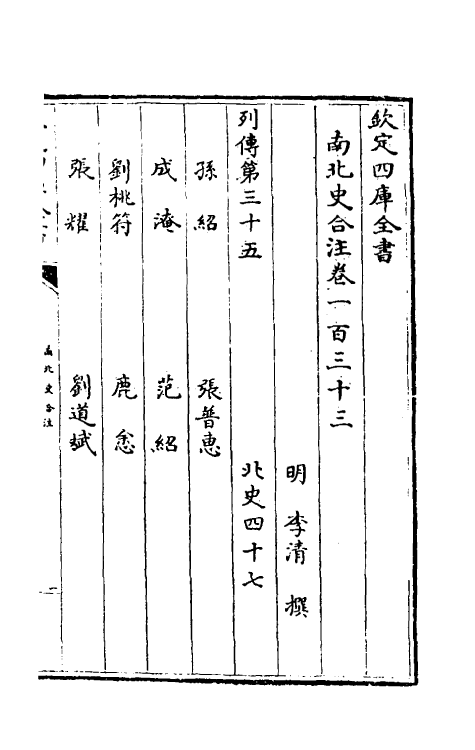 欽定四庫全書
南北史合注卷一百三十三
明 李清 撰
列傳第三十五 北史四十七
孫紹 張普惠
成淹 范紹
劉桃符 鹿悆
張耀 劉道斌
南北史合注